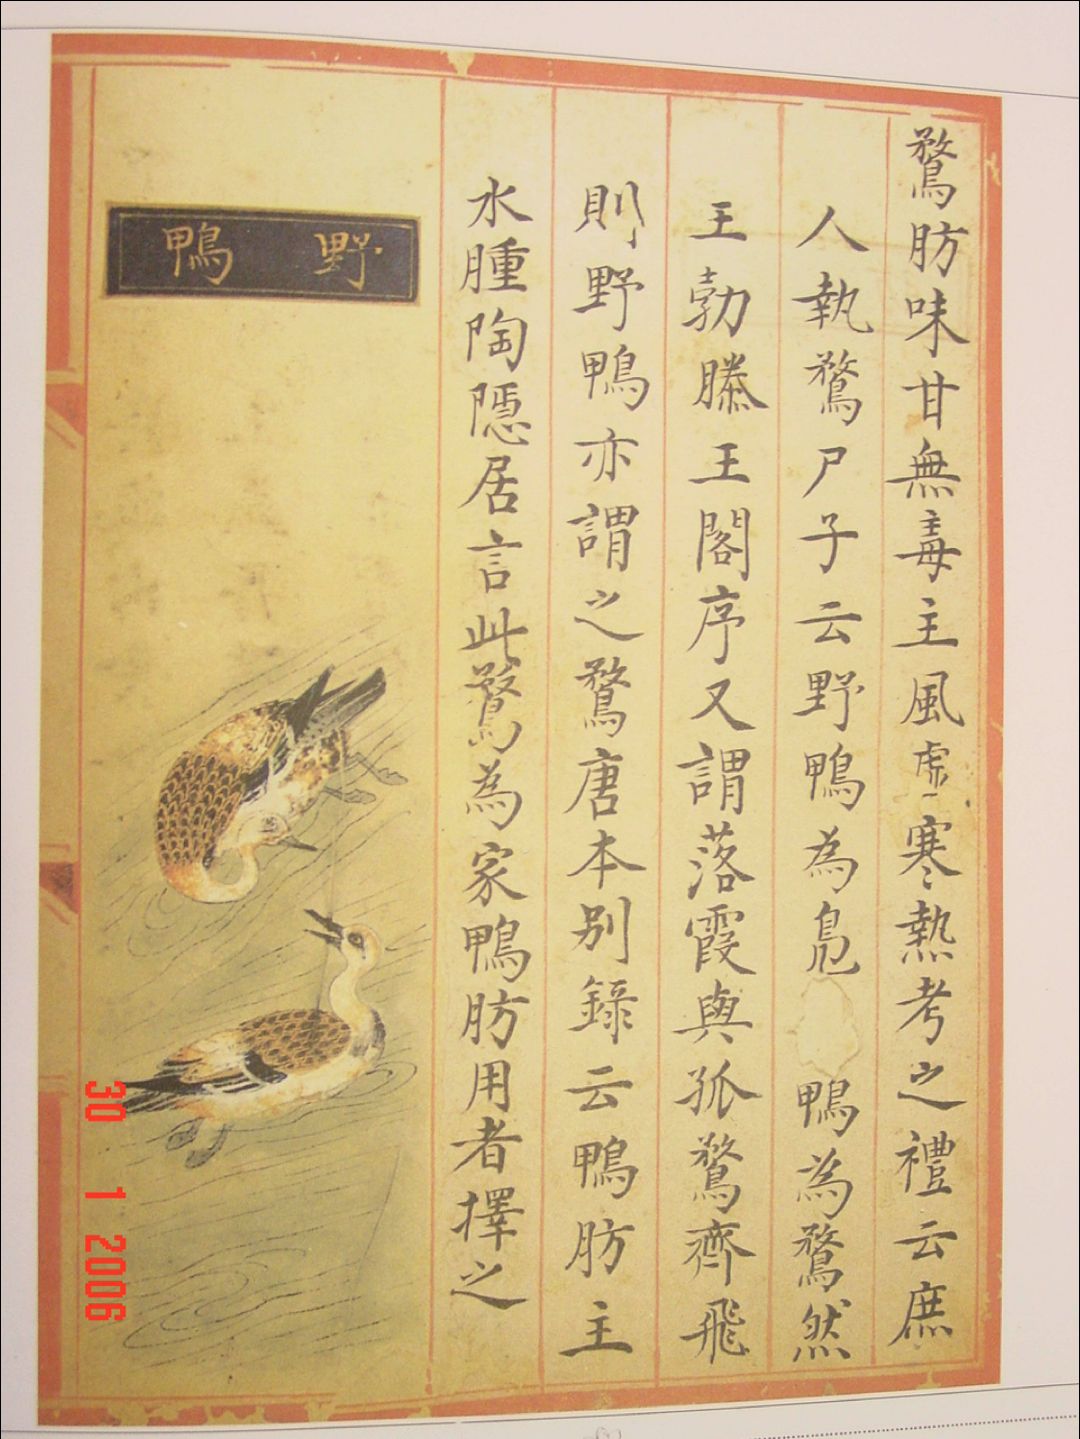 鶩肪味甘無毒主風虛寒熱考之禮云庶
人執鶩尸子云野鴨為鳧 鴨為鶩然
王勃滕王閣序又謂落霞與孤鶩齊飛
則野鴨亦謂之鶩唐本別錄云鴨肪主
水腫陶隱居言此鶩為家鴨肪用者擇之
野鴨
30 1 2006